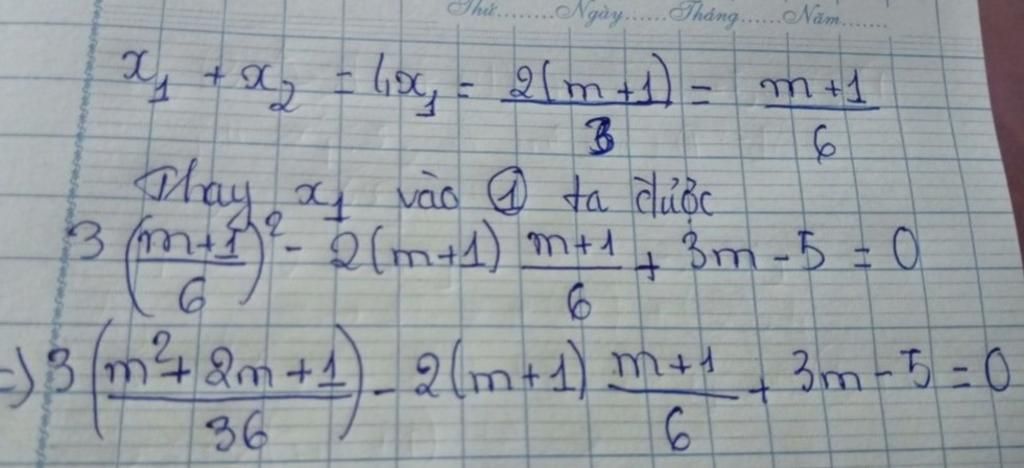 Thứ........Ngày......Tháng......Năm.......
x₁ + x₂ = 4x₁ = \frac{2(m+1)}{3} = \frac{m+1}{6}
Thay x₁ vào ① ta được
3 (\frac{m+1}{6})² - 2(m+1) \frac{m+1}{6} + 3m - 5 = 0
=) 3 (\frac{m²+2m+1}{36}) - 2(m+1) \frac{m+1}{6} + 3m - 5 = 0